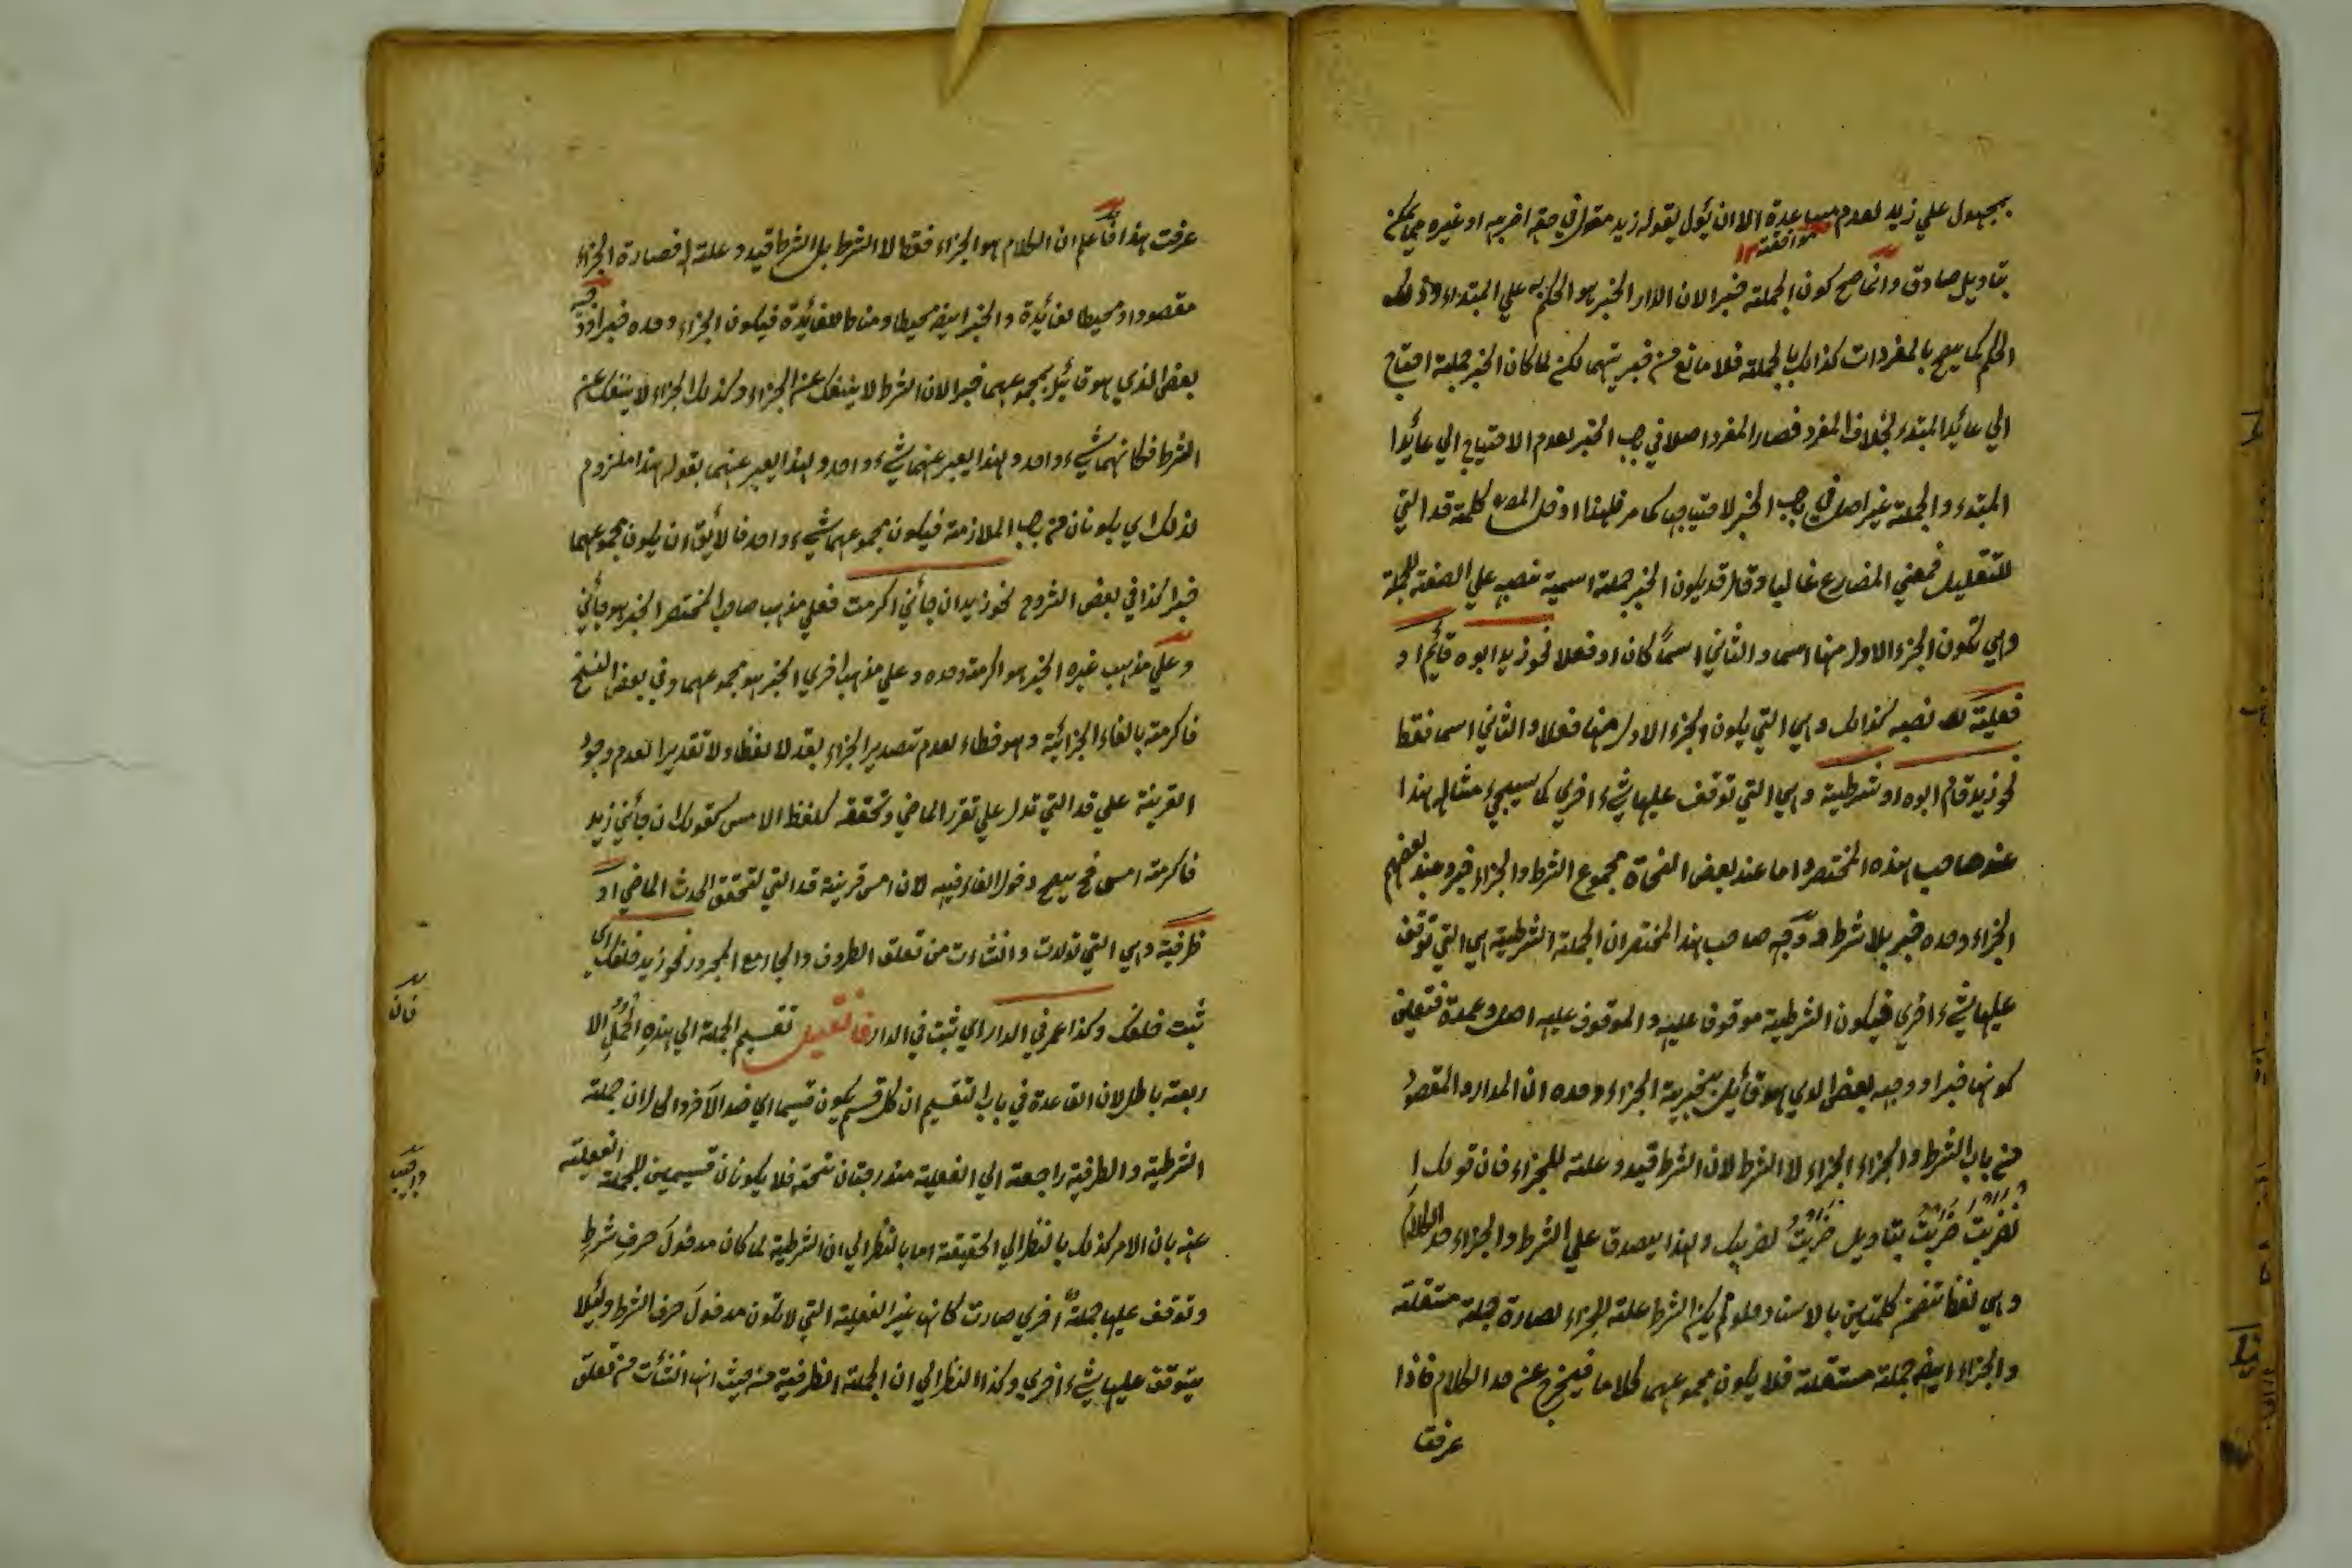 بمجهول علي زيد لعدم مساعدة الا ان يؤل بقوله زيد مقول في حقه اضربه او غيره مما يمكن
موافقته
بتاويل صادق وانما صح كون الجملة خبرا لان الدار الخبر هو الحكم به علي المبتداء وذلك
الحكم كما يصح بالمفردات كذالك بالجملة فلا مانع من خبريتهما لكن لما كان الخبر جملة احتاج
الي عائد المبتدء بخلاف المفرد فصار المفرد اصلا في باب الخبر لعدم الاحتياج الي عائدا
المبتدء والجملة غير اصل في باب الخبر لاحتياجها كما مر فلهذا ادخل المص كلمة قد التي
للتقليل فمعني المضارع غالبا وقال قد يكون الخبر جملة اسمية نصبه علي الصفة للجملة
وهي تكون الجزء الاول منها اسما والثاني اسماً كان او فعلا نحو زيد ابوه قائم او
فعلية نصبه كذالك وهي التي يكون الجزء الاول منها فعلا والثاني اسما فقط
نحو زيد قام ابوه او شرطية وهي التي توقف عليها شيء اخري كما سيجيء مثاله هذا
عند صاحب هذه المختصر واما عند بعض النحاة مجموع الشرط والجزاء خبر وعند بعضهم
الجزاء وحده خبر بلا شرط ووجه صاحب هذا المختصر ان الجملة الشرطية هي التي توقف
عليها شيء اخري فيكون الشرطية موقوف عليه والموقوف عليه اصل وعمدة فتعين
كونها خبرا ووجه بعض الذي هو قائل بخبرية الجزاء وحده ان المدار والمقصود
من باب الشرط والجزاء الجزاء لا الشرط لان الشرط قيد وعلة للجزاء فان قولك ا
نضربت ضربت بتاويل ضربت لضربك ولهذا يصدق علي الشرط والجزاء حد الكلام
وهي لفظ تضمن كلمتين بالاسناد فلو لم يكن الشرط علة للجزاء لصارة جملة مستقلة
والجزاء ايضا جملة مستقلة فلا يكون مجموعهما كلاما فيخرج عن حد الكلام فاذا
عرفت
عرفت هذا فاعلم ان الكلام هو الجزاء فقط لا الشرط بل الشرط قيد وعلة له فصارة الجزاء
مقصودا ومحيطا لفائدة والخبر ايضا محيطا ومناطا للفائدة فيكون الجزاء وحده خبرا ووجه
بعض الذي هو قائل بمجموعهما خبرا لان الشرط لا ينفك عن الجزاء وكذلك الجزاء لا ينفك عن
الشرط فكانهما شيء واحد ولهذا يعبر عنهما شيء واحد ولهذا يعبر عنهما بقوله هذا ملزوم
لذلك اي يكونان من باب الملازمة فيكون مجموعهما شيء واحد فالايق ان يكون مجموعهما
خبرا كذا في بعض الشروح نحو زيد ان جائني اكرمت فعلي مذهب صاحب المختصر الخبر هو جائني
وعلي مذهب غيره الخبر هو اكرمته وحده وعلي مذهب اخري الخبر هو مجموعهما وفي بعض النسخ
فاكرمته بالفاء الجزائية وهو خطاء لعدم تصدير الجزاء بقد لا لفظا ولا تقديرا لعدم وجود
القرينة علي قد التي تدل علي تقرر الماضي وتحققه كلفظ الامس كقولك ان جائني زيد
فاكرمته امس فح يصح دخول الفاء فيه لان امس قرينة قد التي لتحقق الحدث الماضي او
ظرفية وهي التي تولدت وانشاءت من تعلق الظروف والجار مع المجرور نحو زيد خلفك اي
ثبت خلفك وكذا عمر في الدار اي ثبت في الدار فان قيل تقسيم الجملة الي هذه الجمل الا
ربعة باطل لان القاعدة في باب التقسيم ان كل قسم يكون قسيما اي ضد الآخر والحال ان جملة
الشرطية والظرفية راجعة الي الفعلية مندرجتان تحته فلا يكونان قسيمين للجملة الفعلية
عنه بان الامر كذلك بالنظر الي الحقيقة اما بالنظر الي ان الشرطية لما كان مدخول حرف شرط
وتوقف عليها جملة اخري صارت كانها غير الفعلية التي لا تكون مدخول حرف الشرط ولئلا
يتوقف عليها شيء اخري وكذا النظر الي ان الجملة الظرفية من حيث انها انشئت من تعلق
فان
واجيب